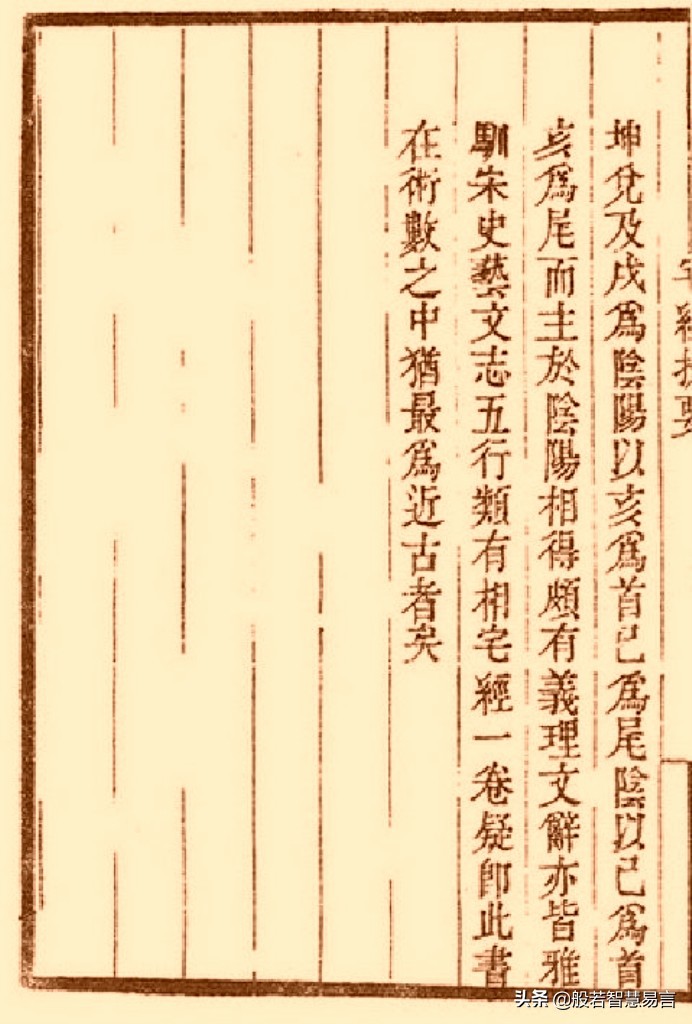 坤兌及戌爲陰陽以亥爲首巳爲尾陰以巳爲首
亥爲尾而主於陰陽相得頗有義理文辭亦皆雅
馴朱史藝文志五行類有相宅經一卷疑卽此書
在術數之中猶最爲近古者矣
头条 @般若智慧易言